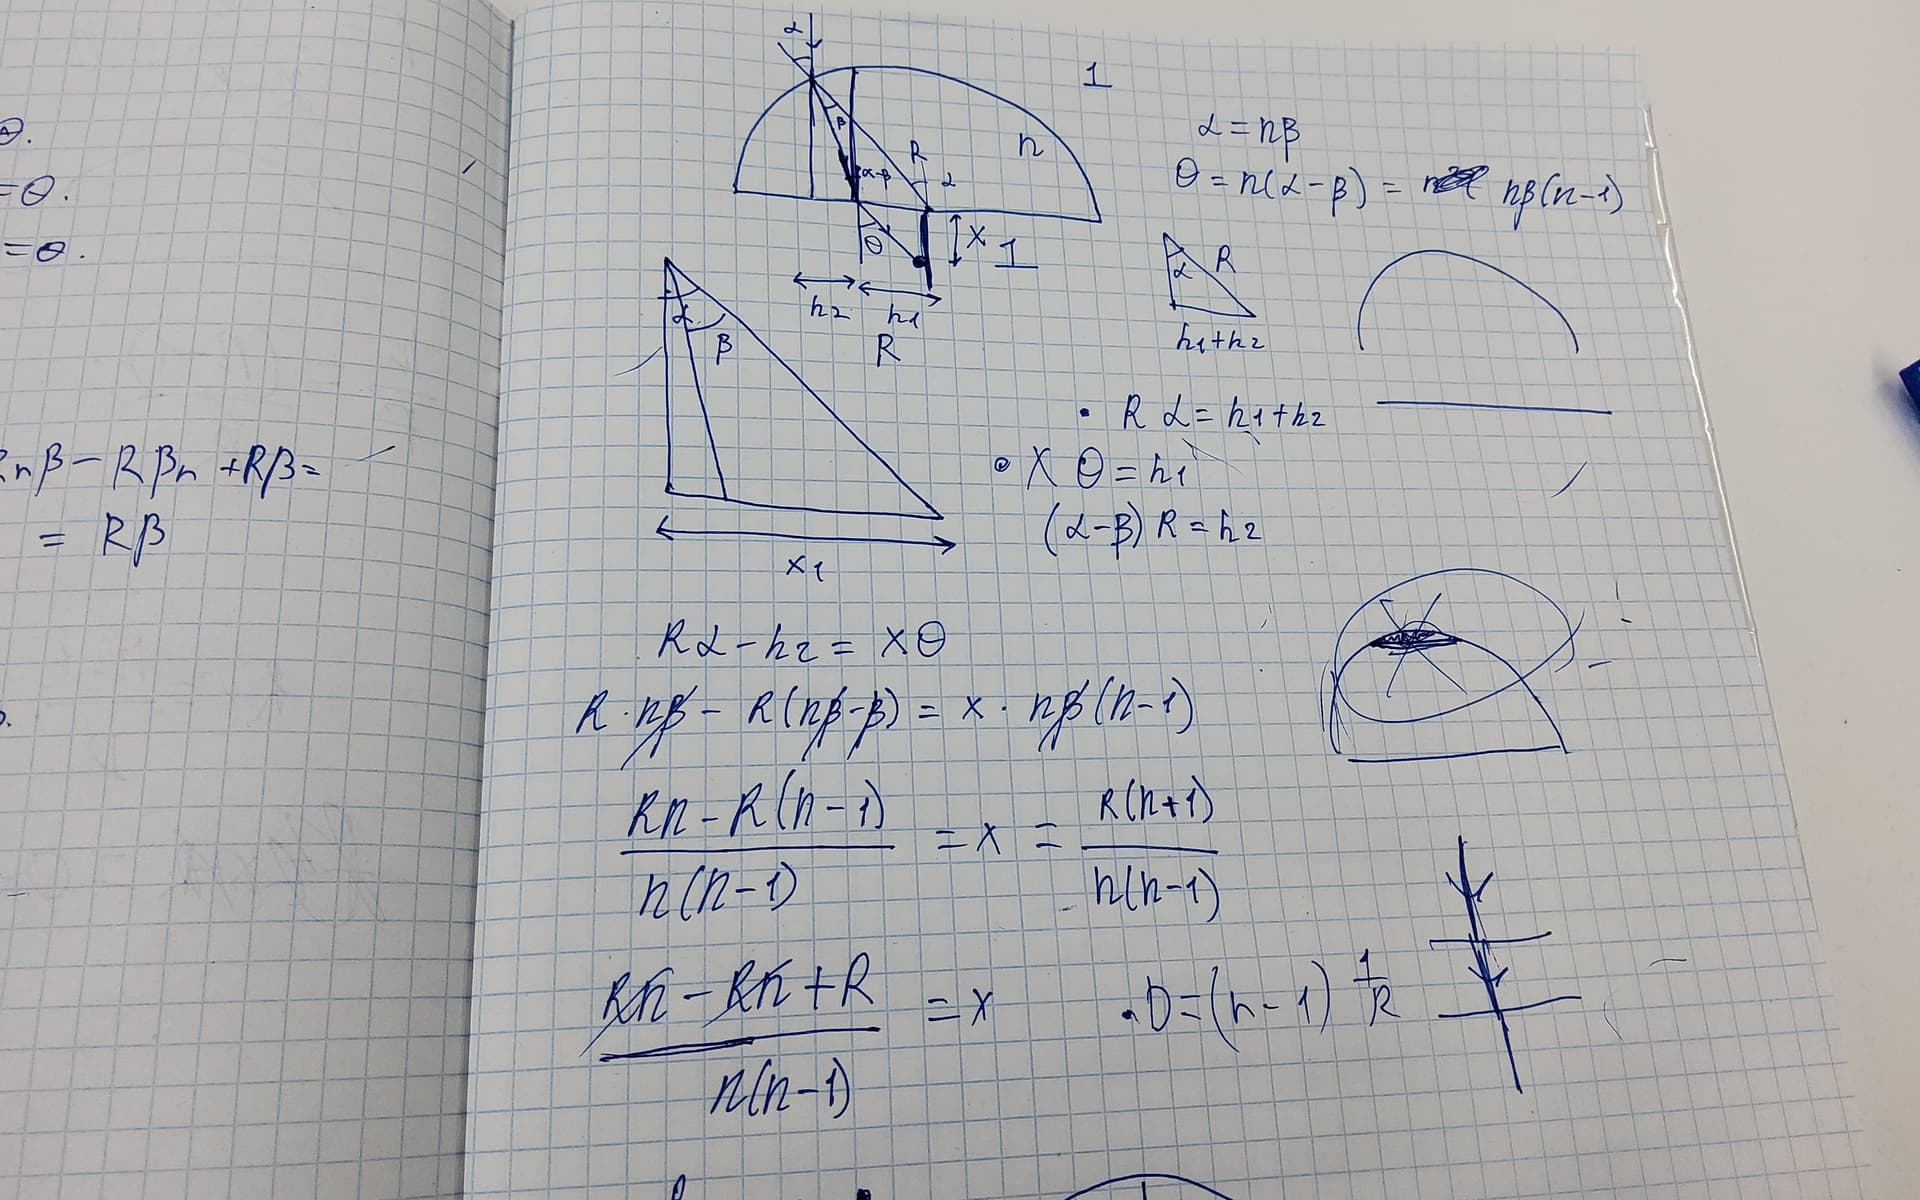 θ.
=θ.
=θ.
Rnβ − Rβn + Rβ =
= Rβ
α
1
β
α-β
R
α
n
θ
x
1
h2
h1
R
α = nβ
θ = n(α − β) = nβ(n−1)
α
R
h1+h2
α
β
x1
• Rα = h1+h2
• X θ = h1
(α−β) R = h2
Rα − h2 = xθ
R · nβ − R(nβ−β) = x · nβ(n−1)
Rn − R(n−1) / n(n−1) = x = R(n+1) / n(n−1)
Rn − Rn + R / n(n−1) = x
• D = (n−1) 1/R